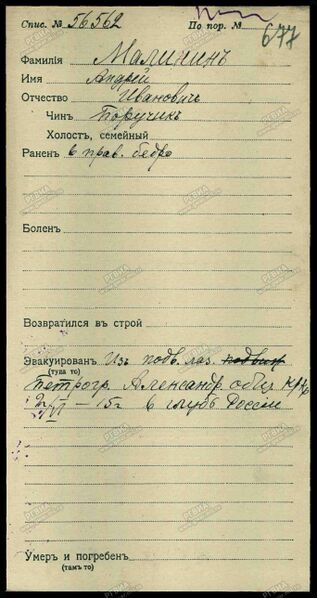 Спис. № 56562 По пор. №
677
Фамилія Малининъ
Имя Андрей
Отчество Ивановичъ
Чинъ Поручикъ
Холостъ, семейный
Раненъ в прав. бедро
Боленъ
Возвратился въ строй
Эвакуированъ Изъ подв. лаз.
(туда то)
Петрогр. Александр. общ. Кр.
VI – 15 г в глубь России
Умеръ и погребенъ
(тамъ то)